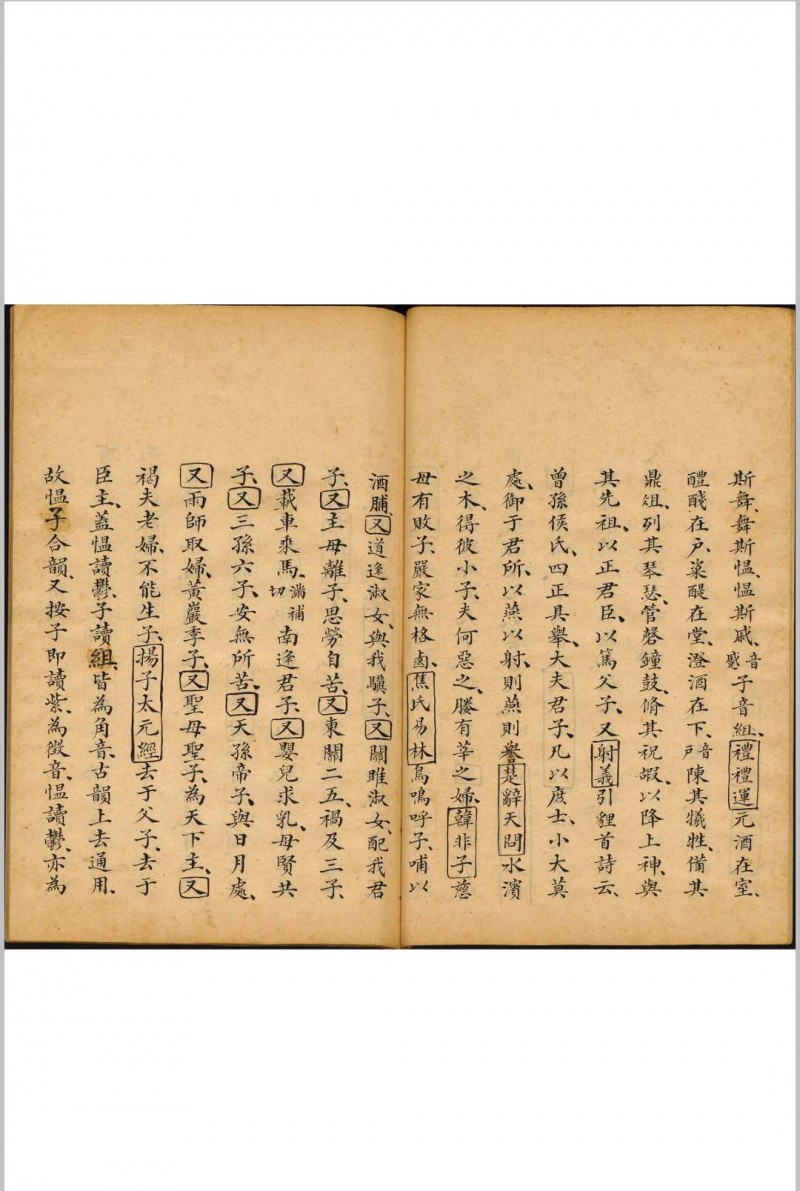 斯舞、舞斯愠、愠斯戚、音慼子音組、禮禮運元酒在室、
醴醆在戶、粢醍在堂、澄酒在下、音戶陳其犧牲、備其
鼎俎、列其琴瑟、管磬鐘鼓、脩其祝嘏、以降上神、與
其先祖、以正君臣、以篤父子、又射義引貍首詩云、
曾孫侯氏、四正具舉、大夫君子、凡以庶士、小大莫
處、御于君所、以燕以射、則燕則譽、楚辭天問水濱
之木、得彼小子、夫何惡之、媵有莘之婦、韓非子慈
母有敗子、嚴家無格鹵、焦氏易林鳥鳴呼子、哺以
酒脯、又道逢淑女、與我驥子、又關雎淑女、配我君
子、又主母離子、思勞自苦、又東關二五、禍及三子、
又載車乘馬、滿補切南逢君子、又嬰兒求乳、母賢共
子、又三孫六子、安無所苦、又天孫帝子、與日月處、
又雨師取婦、黃巖季子、又聖母聖子、為天下主、又
褐夫老婦、不能生子、揚子太元經去于父子、去于
臣主、蓋愠讀鬱、子讀組、皆為角音、古韻上去通用、
故愠子合韻、又按子即讀紫、為徵音、愠讀鬱、亦為